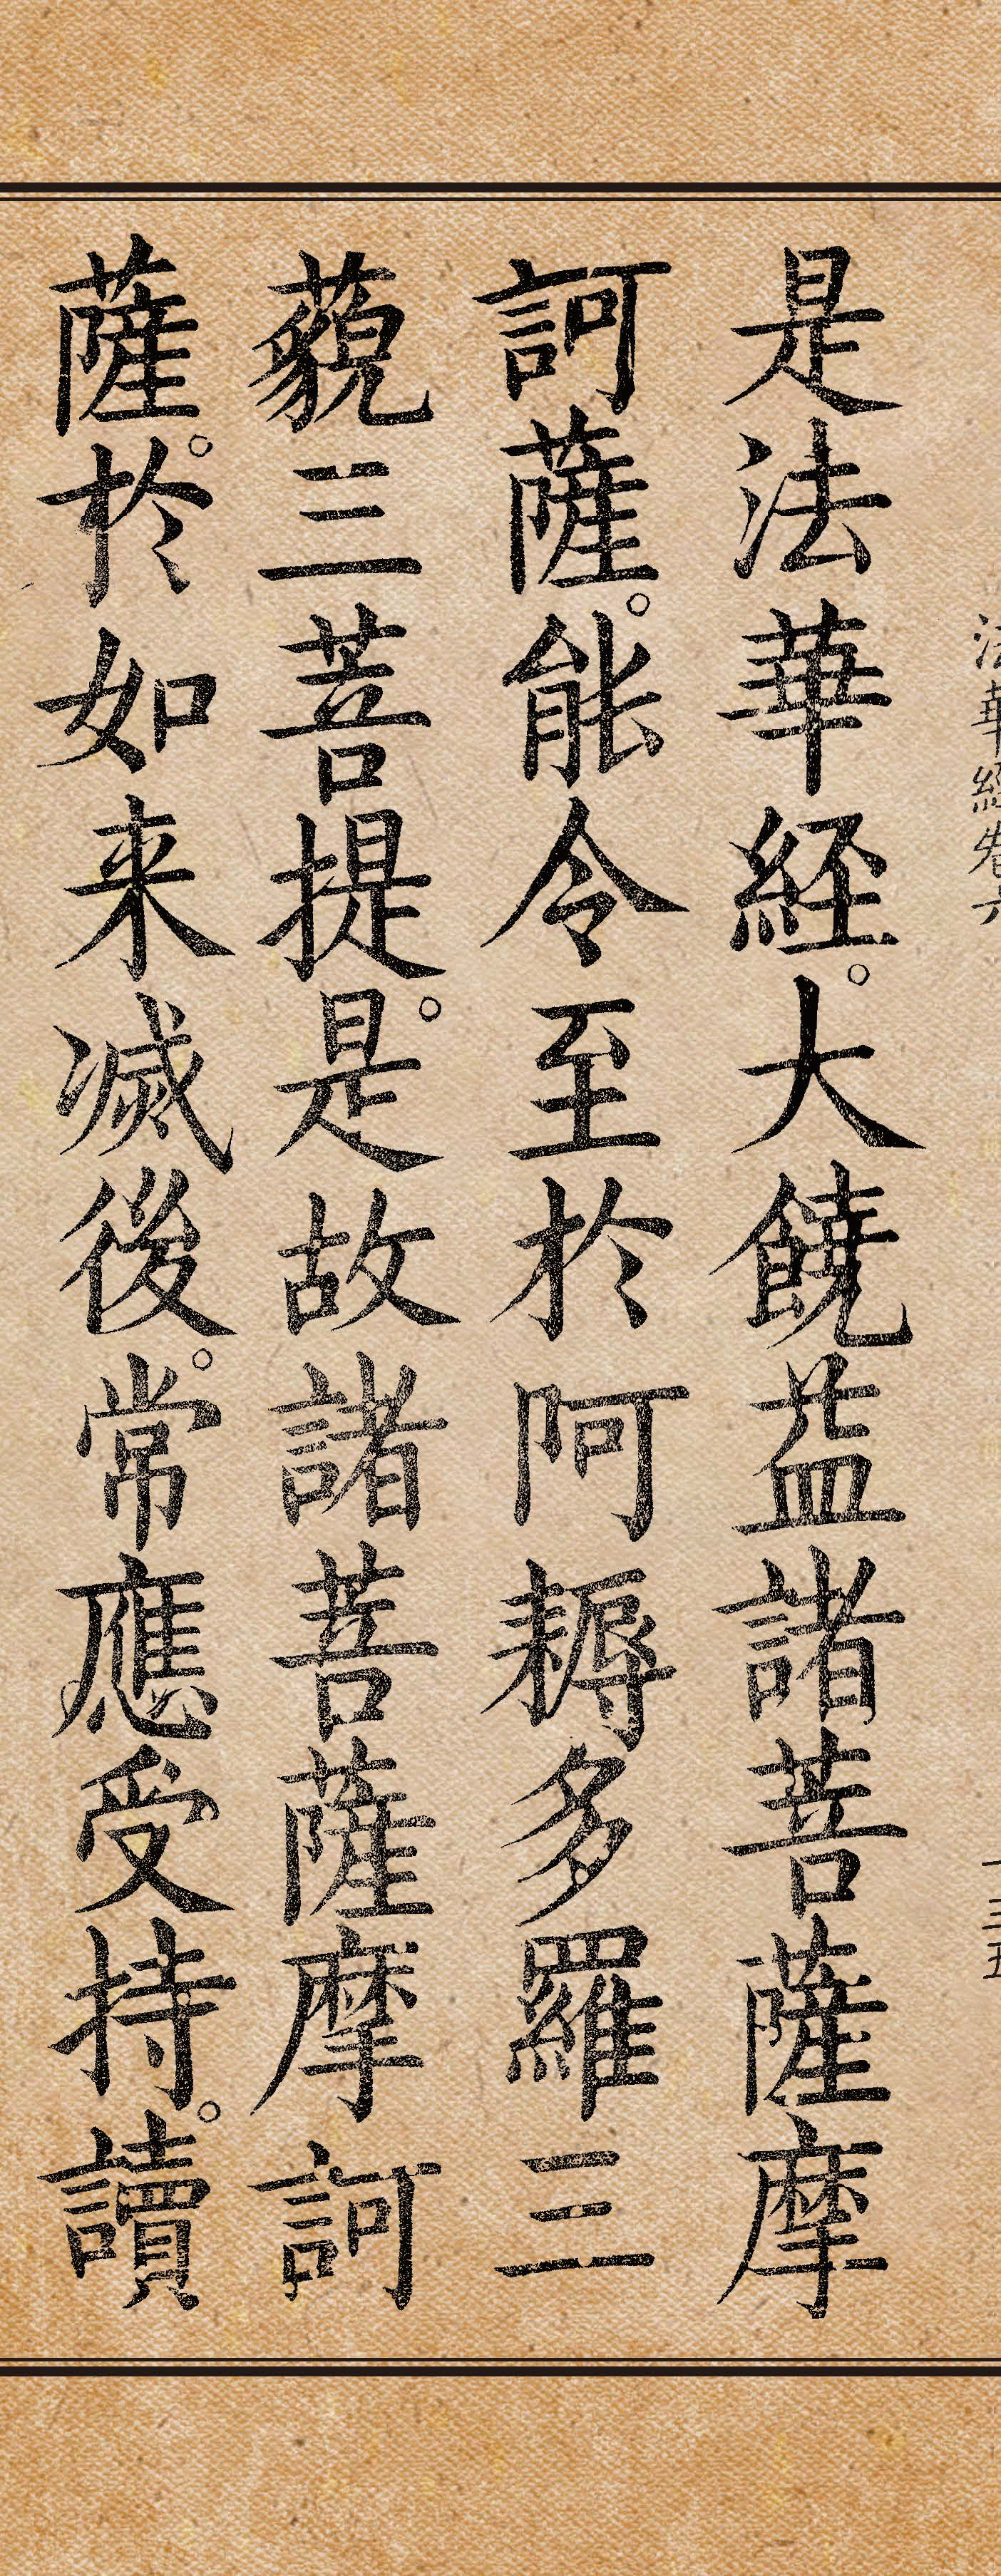 法華經卷六
一三五
是法華経。大饒益諸菩薩摩
訶薩。能令至於阿耨多羅三
藐三菩提。是故諸菩薩摩訶
薩。於如来滅後。常應受持。讀